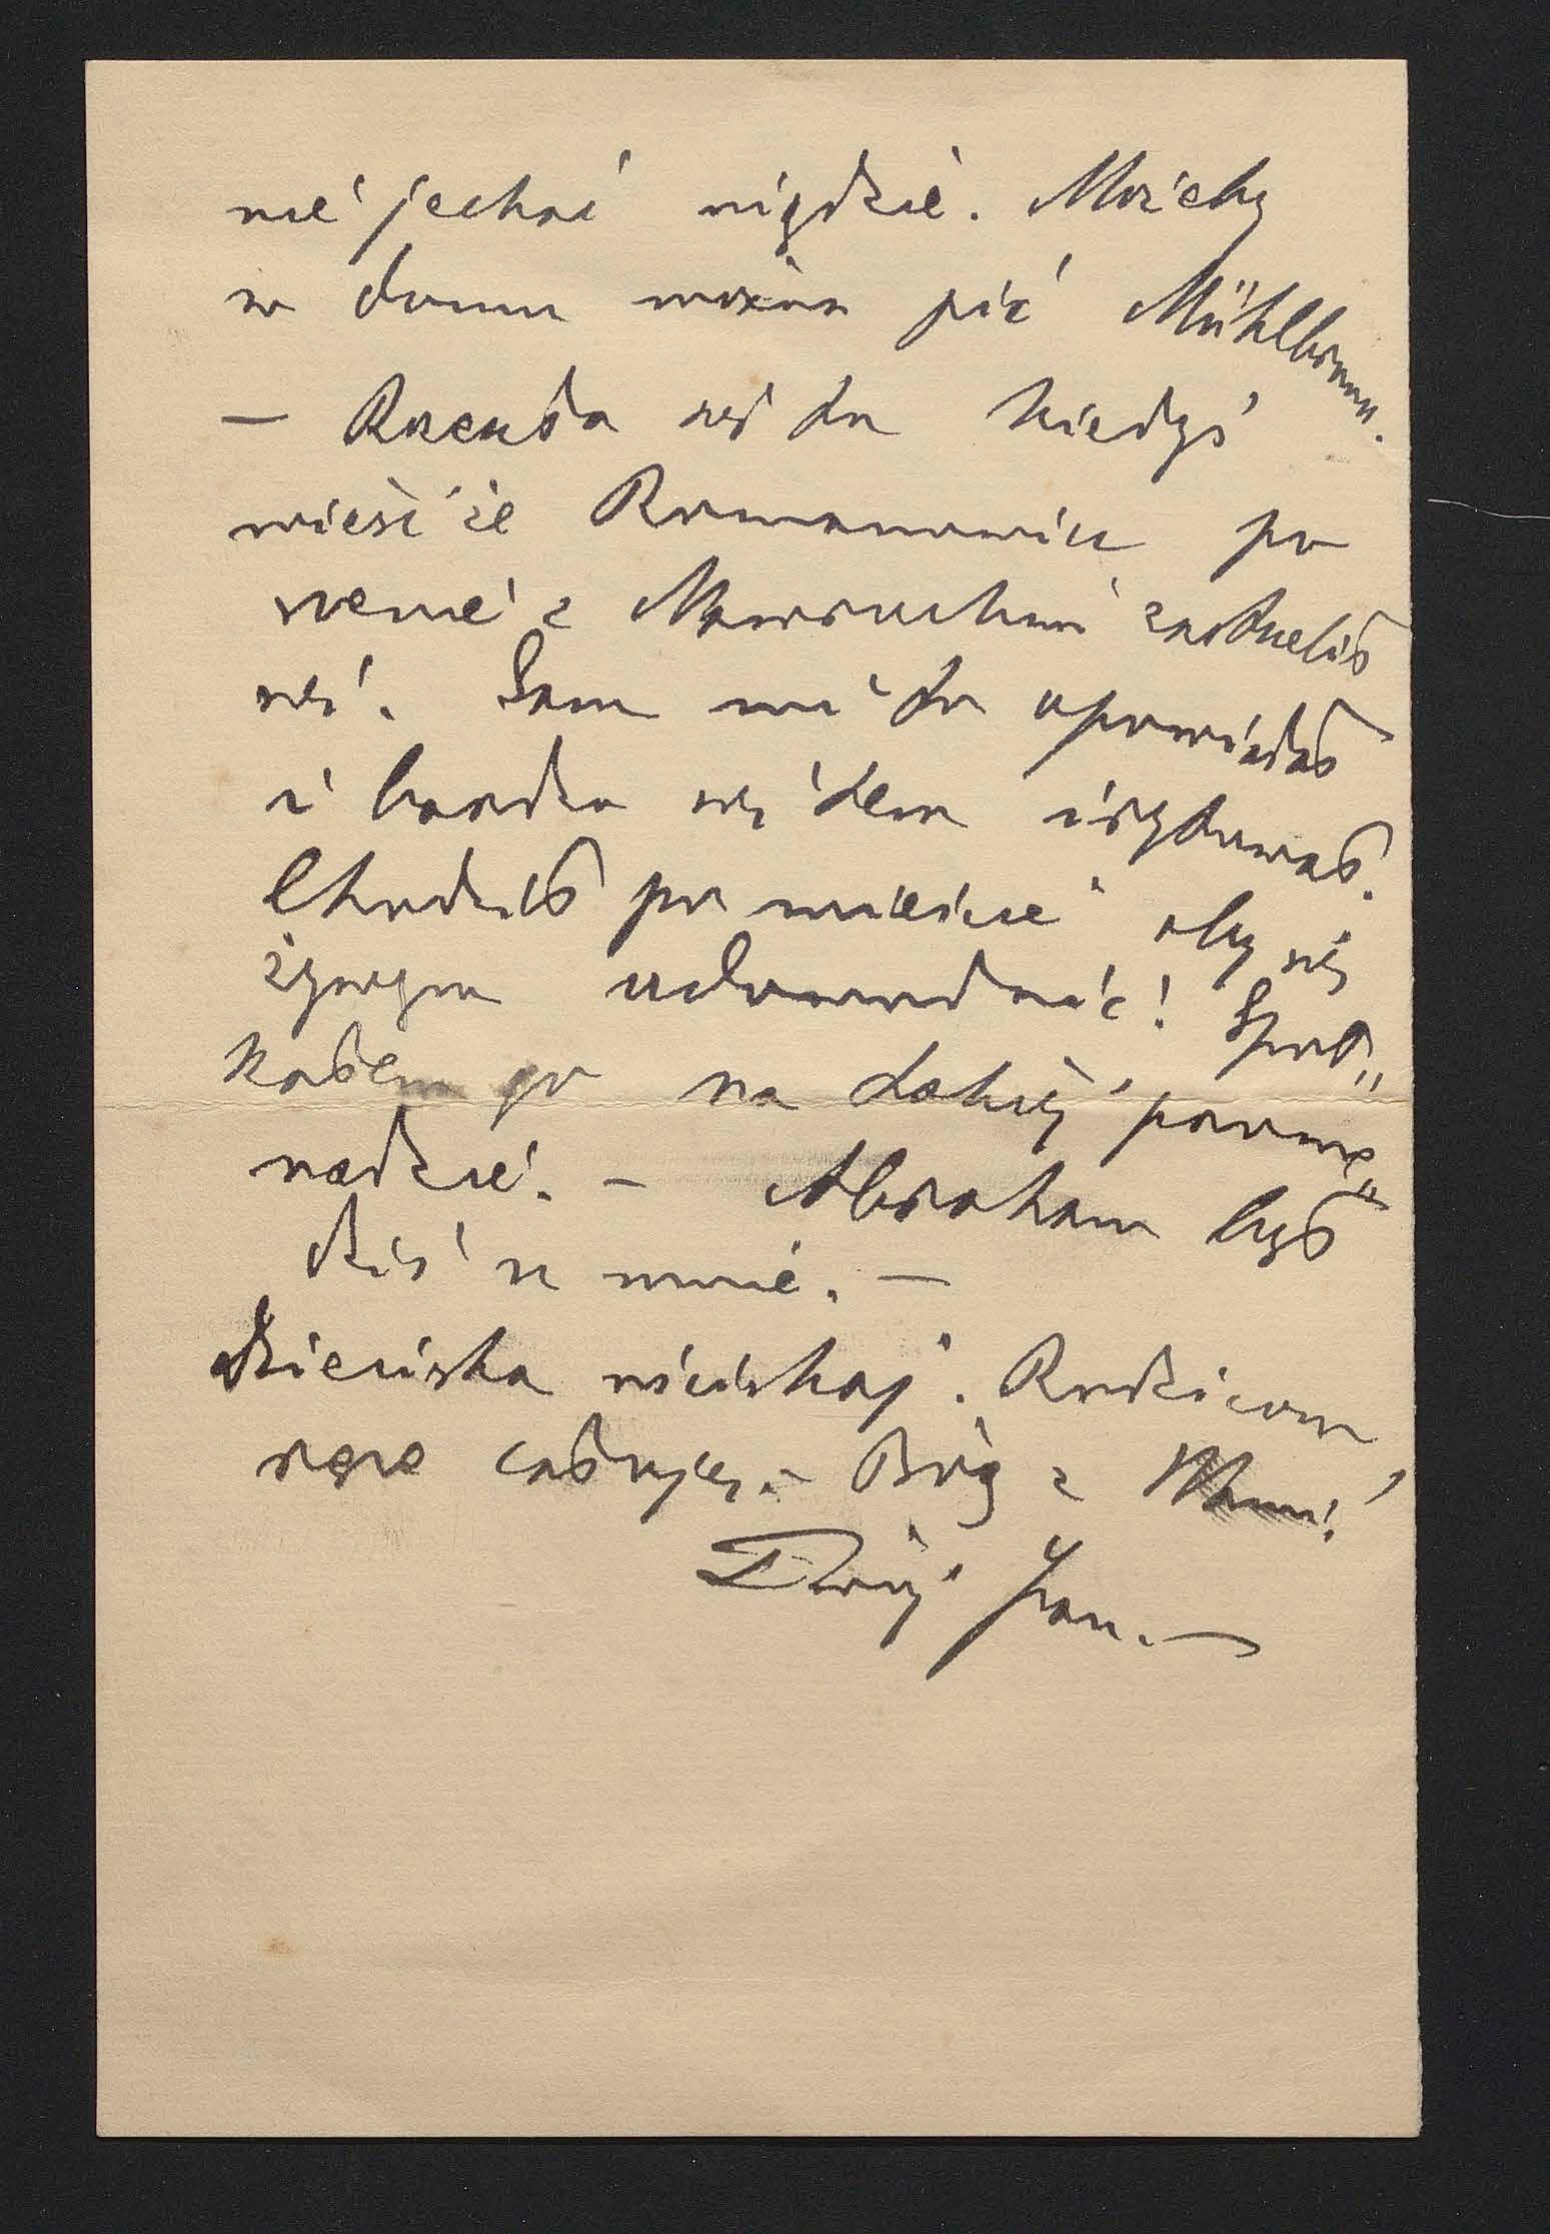 nie jechać nigdzie. Możeby
w domu można pić Mühlbrunn.
— Rozeszła się tu kiedyś
wieść że Romanowicz po
scenie z Mawruckim zastrzelił
się. Sam mi to opowiadał
i bardzo się tem irytował.
Chodził po mieście aby się
żywym udowodnić! Spot„
kałem go na takiej prome„
nadzie. — Abraham był
dziś u mnie. —
Dzieciska uściskaj. Rodzicom
ręce całuję. — Bóg z Wami!
Twój Jan. —